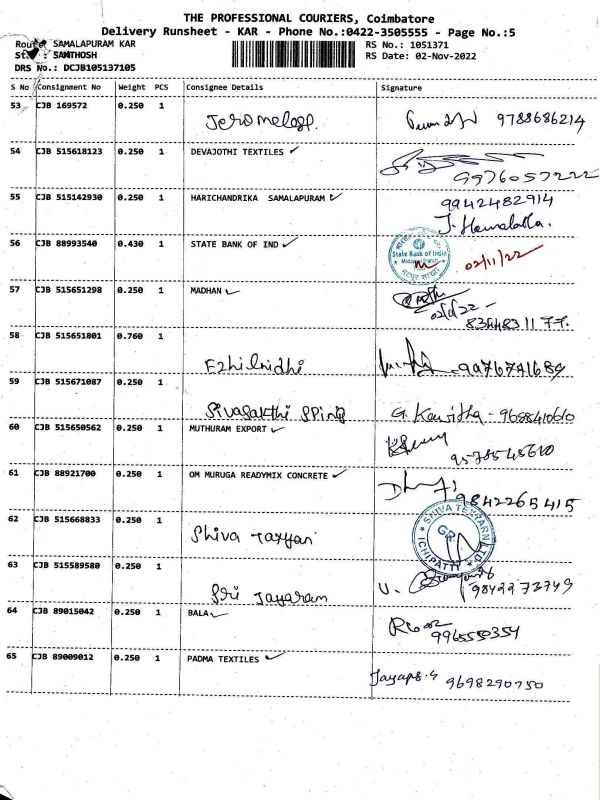 THE PROFESSIONAL COURIERS, Coimbatore
Delivery Runsheet - KAR - Phone No.:0422-3505555 - Page No.:5
Route: SAMALAPURAM KAR
RS No.: 1051371
: SANTHOSH
RS Date: 02-Nov-2022
DRS No.: DCJB105137105
S No Consignment No Weight PCS Consignee Details Signature
53 CJB 169572 0.250 1 9788686214
54 CJB 515618123 0.250 1 DEVAJOTHI TEXTILES ✓
9976057222
55 CJB 515142930 0.250 1 HARICHANDRIKA SAMALAPURAM ✓ 9942482914
J. Hemalatha.
56 CJB 88993540 0.430 1 STATE BANK OF IND ✓
State Bank of India
02/11/22
57 CJB 515651298 0.250 1 MADHAN ✓
58 CJB 515651801 0.760 1
Ezhilnidhi
59 CJB 515671087 0.250 1
Sivasakthi Sping G. Kavitha - 9688410610
60 CJB 515650562 0.250 1 MUTHURAM EXPORT ✓
9578548610
61 CJB 88921700 0.250 1 OM MURUGA READYMIX CONCRETE ✓
9842265415
62 CJB 515668833 0.250 1 SHIVA TEXYARN LTD
Shiva Taxyan
ICHIPATTY
63 CJB 515589580 0.250 1
Sri Jayaram 9842273749
64 CJB 89015042 0.250 1 BALA ✓
9965550354
65 CJB 89009012 0.250 1 PADMA TEXTILES ✓
9698290750